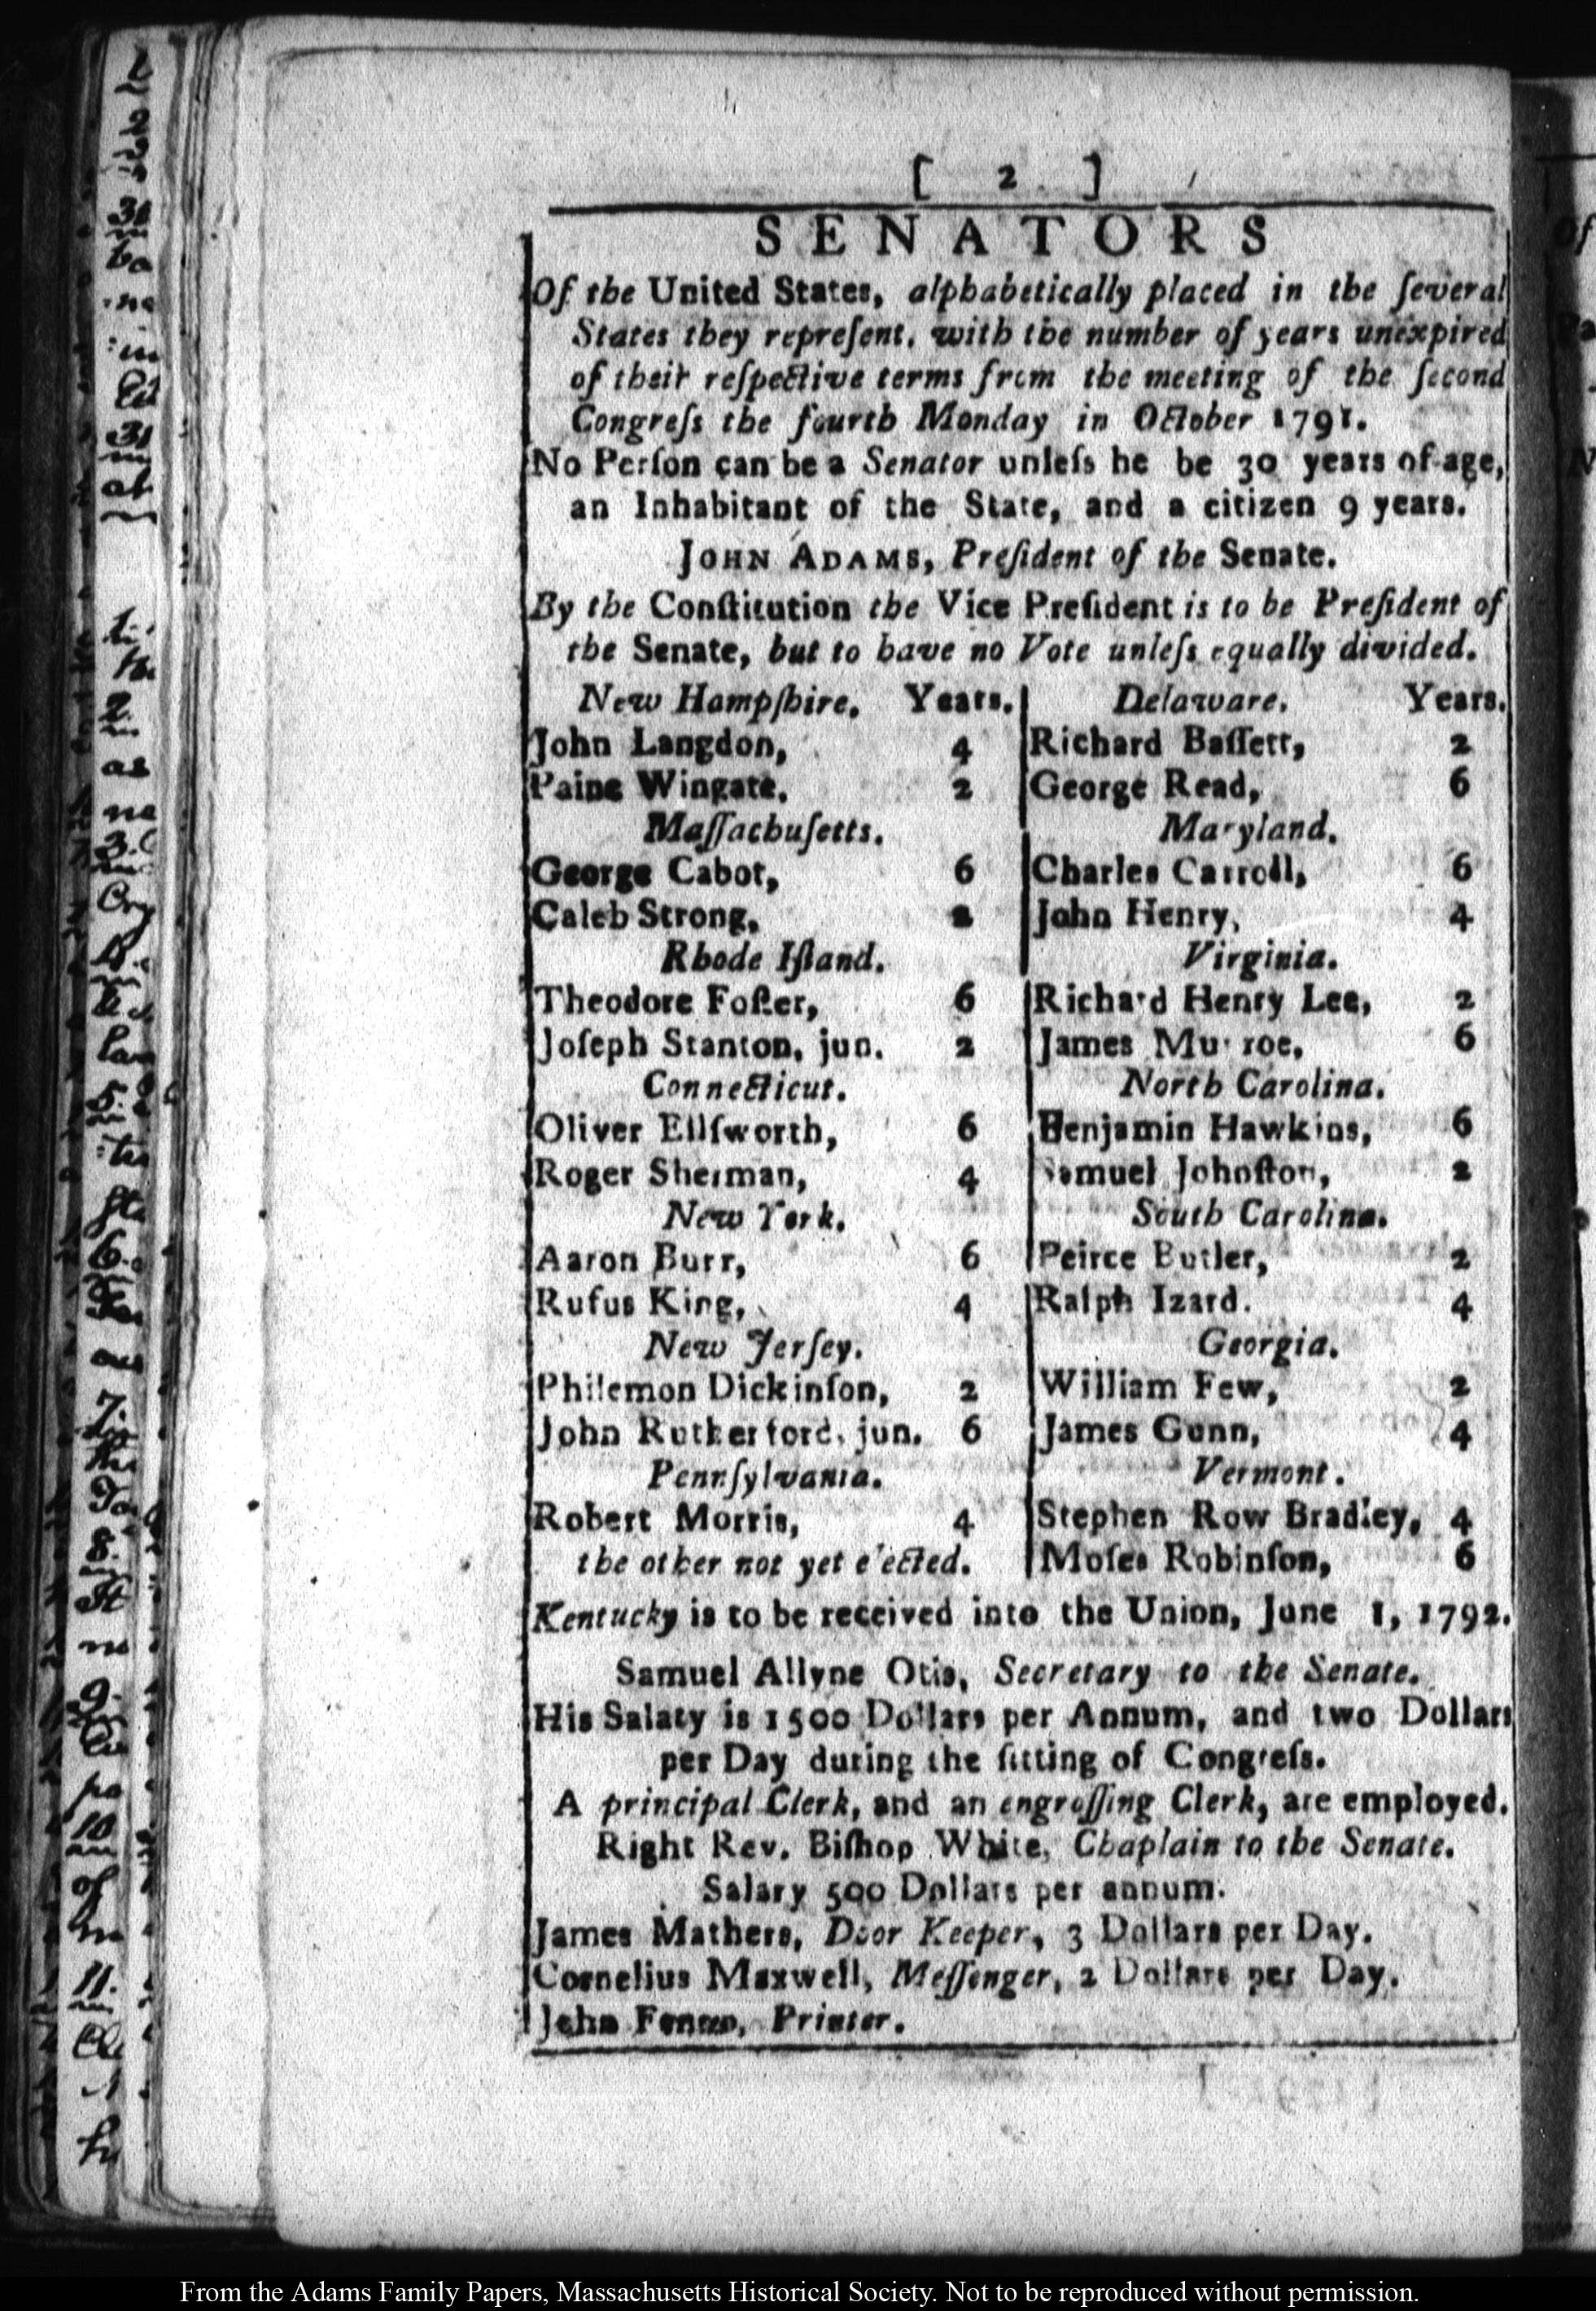 [ 2 ]
SENATORS
Of the United States, alphabetically placed in the ſeveral
States they repreſent, with the number of years unexpired
of their reſpective terms from the meeting of the ſecond
Congreſs the fourth Monday in October 1791.
No Perſon can be a Senator unleſs he be 30 years of age,
an Inhabitant of the State, and a citizen 9 years.
JOHN ADAMS, Preſident of the Senate.
By the Conſtitution the Vice Preſident is to be Preſident of
the Senate, but to have no Vote unleſs equally divided.
New Hampſhire. Years.
John Langdon, 4
Paine Wingate. 2
Maſſachuſetts.
George Cabot, 6
Caleb Strong, 2
Rhode Iſland.
Theodore Foſter, 6
Joſeph Stanton, jun. 2
Connecticut.
Oliver Ellſworth, 6
Roger Sherman, 4
New York.
Aaron Burr, 6
Rufus King, 4
New Jerſey.
Philemon Dickinſon, 2
John Rutherford, jun. 6
Pennſylvania.
Robert Morris, 4
the other not yet elected.
Delaware. Years.
Richard Baſſett, 2
George Read, 6
Maryland.
Charles Carroll, 6
John Henry, 4
Virginia.
Richard Henry Lee, 2
James Munroe, 6
North Carolina.
Benjamin Hawkins, 6
Samuel Johnſton, 2
South Carolina.
Peirce Butler, 2
Ralph Izard. 4
Georgia.
William Few, 2
James Gunn, 4
Vermont.
Stephen Row Bradley, 4
Moſes Robinſon, 6
Kentucky is to be received into the Union, June 1, 1792.
Samuel Allyne Otis, Secretary to the Senate.
His Salary is 1500 Dollars per Annum, and two Dollars
per Day during the ſitting of Congreſs.
A principal Clerk, and an engroſſing Clerk, are employed.
Right Rev. Biſhop White, Chaplain to the Senate.
Salary 500 Dollars per annum.
James Mathers, Door Keeper, 3 Dollars per Day.
Cornelius Maxwell, Meſſenger, 2 Dollars per Day.
John Fenno, Printer.
From the Adams Family Papers, Massachusetts Historical Society. Not to be reproduced without permission.